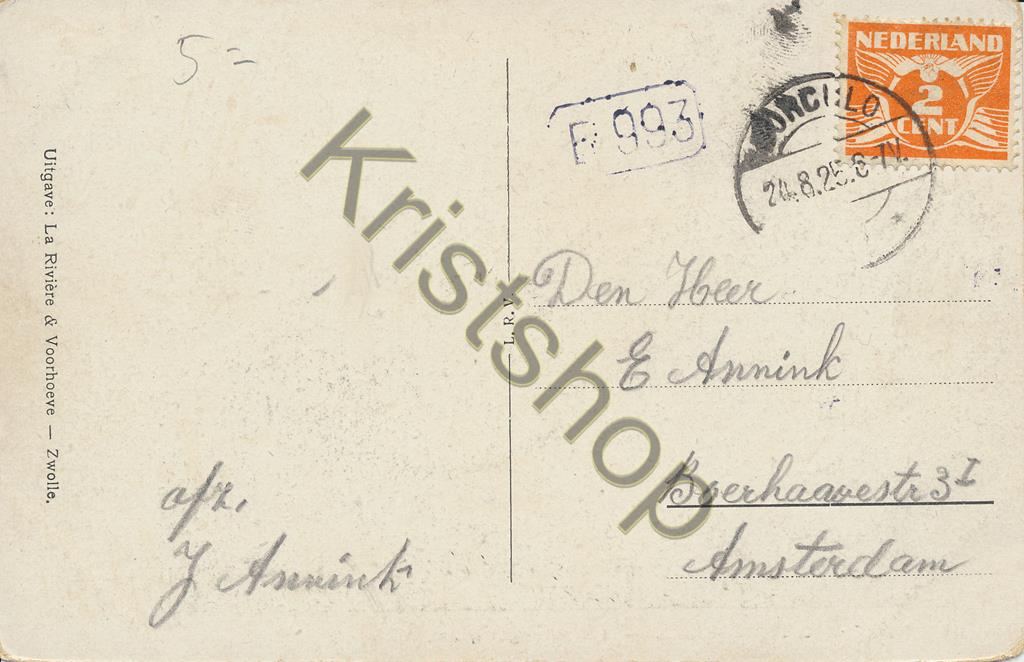 5=
NEDERLAND
2
CENT
BORCULO
24.8.25.6-7V.
993
Uitgave: La Rivière & Voorhoeve — Zwolle.
L.R.V.
Kristshop
Den Heer
E Annink
Boerhaavestr 3 I
Amsterdam
afz.
J Annink